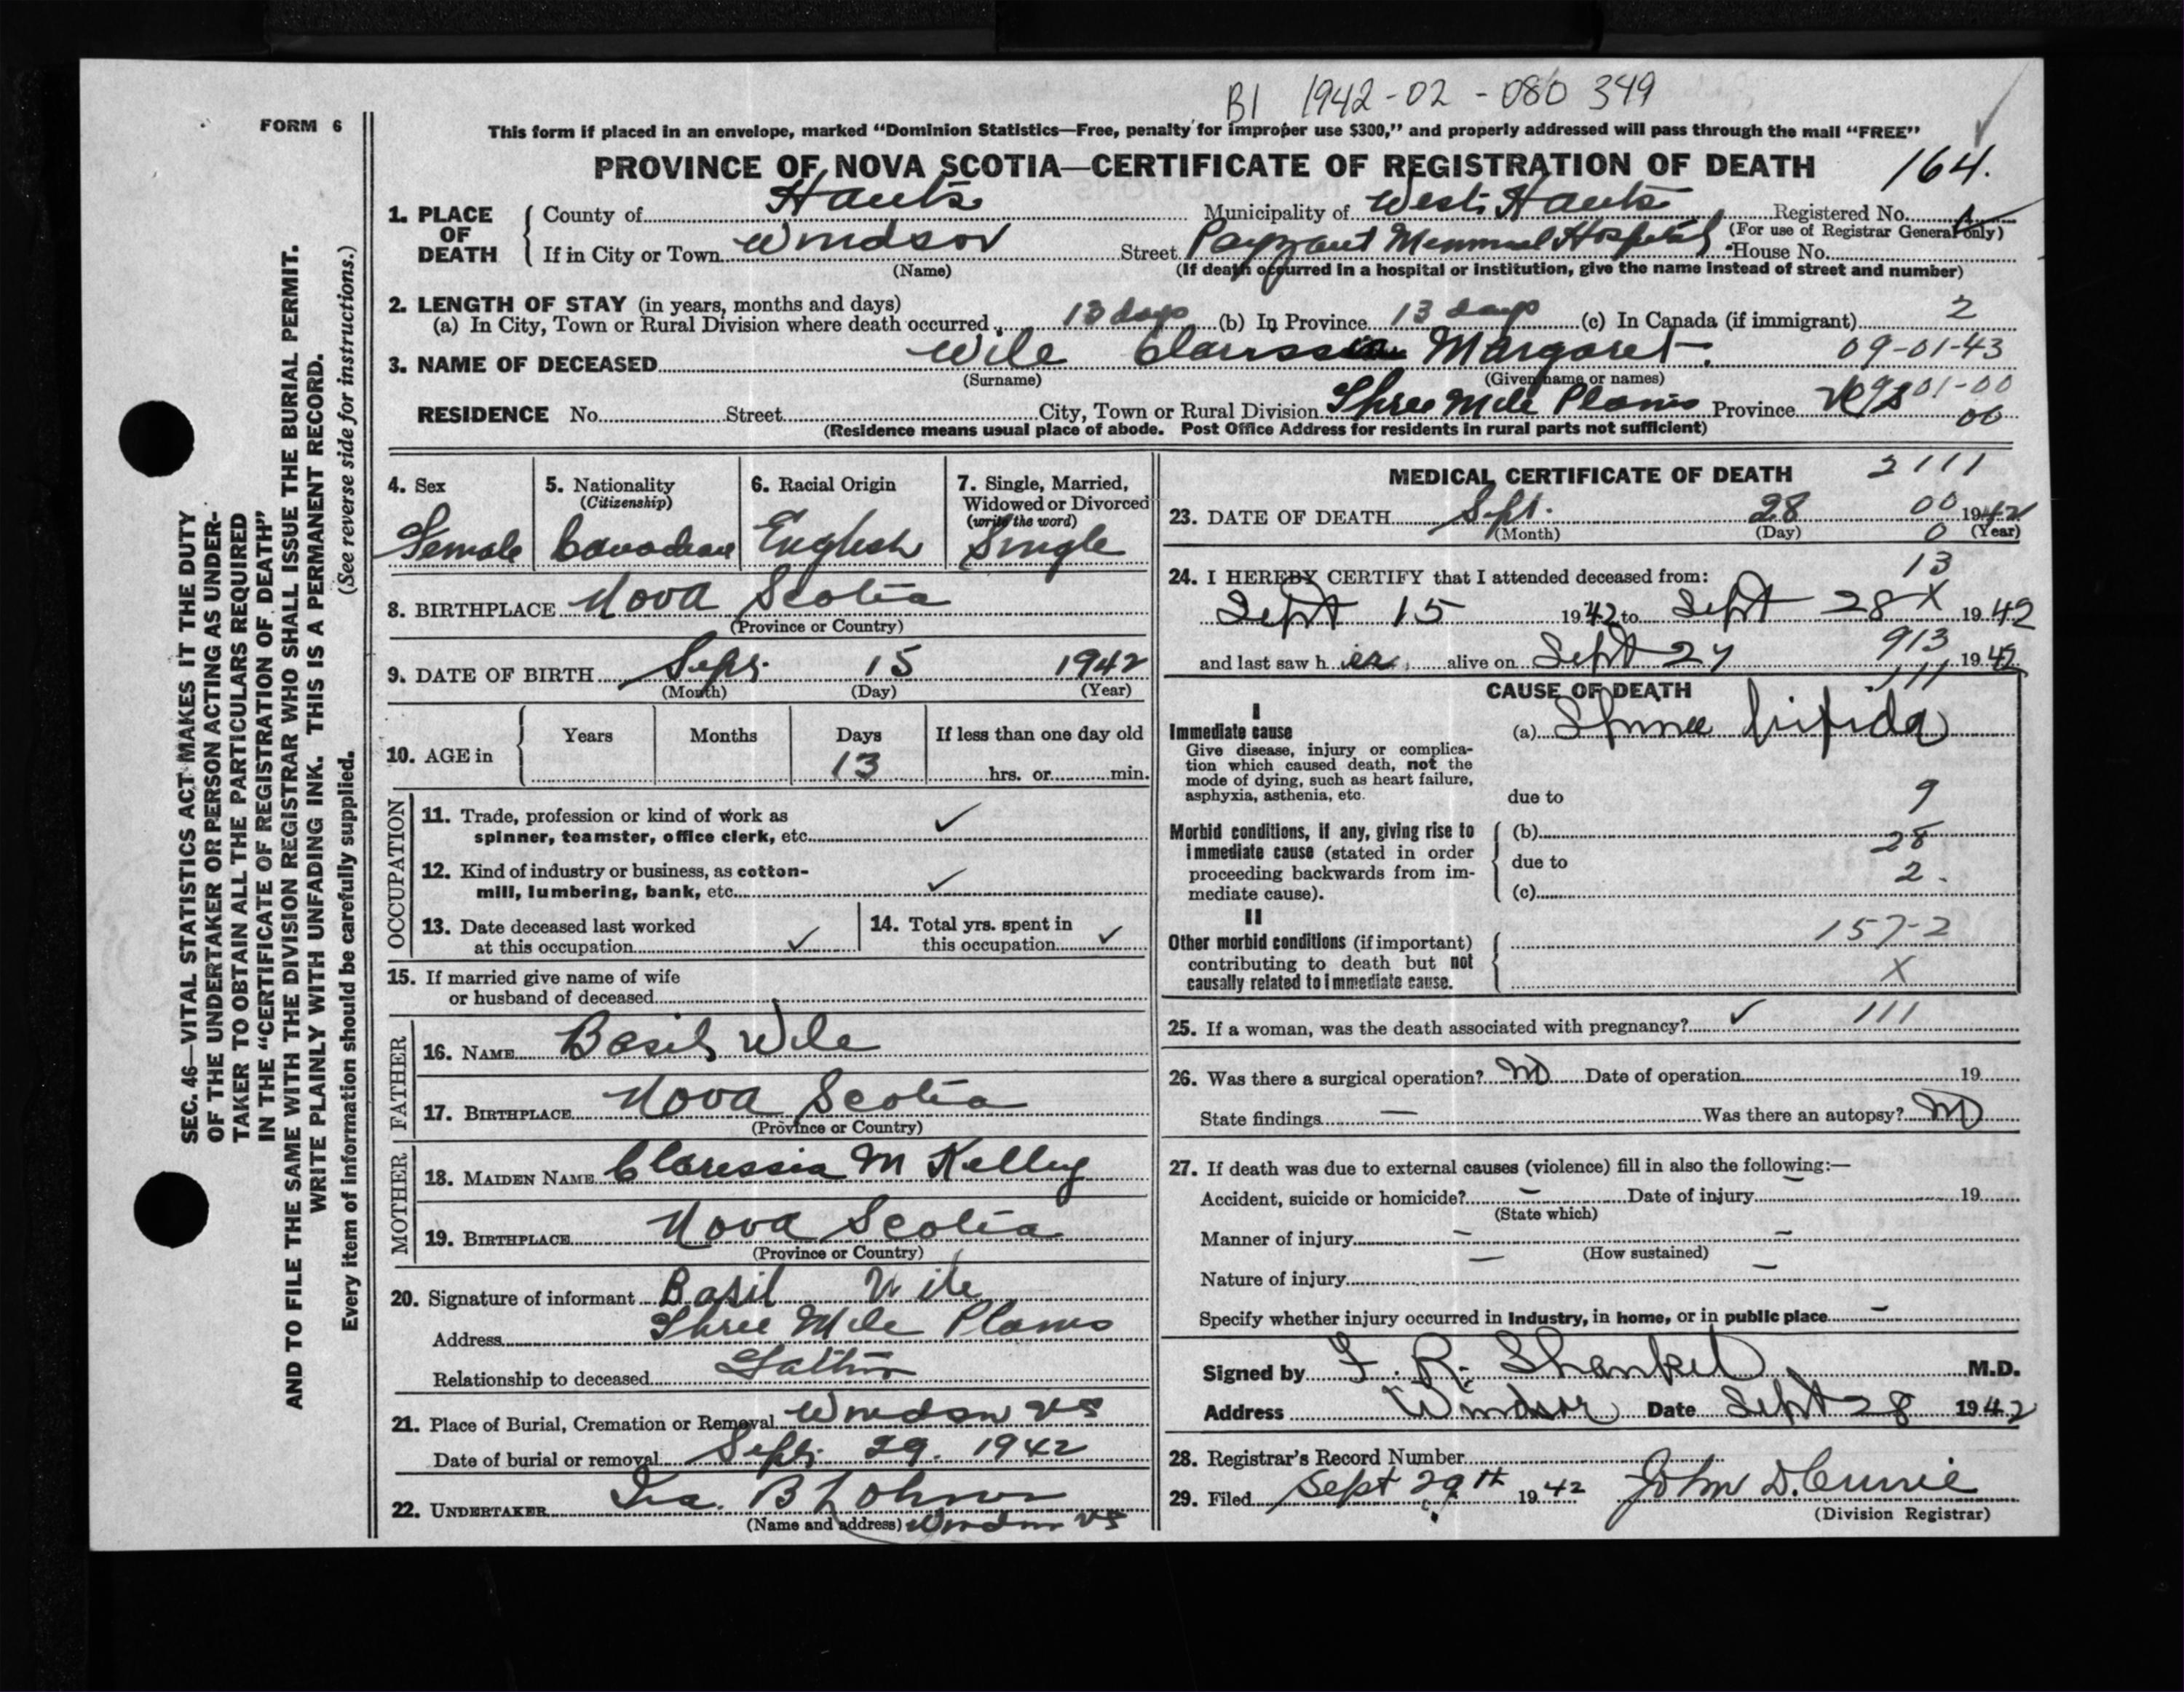 B1 1942-02-080 349
FORM 6
This form if placed in an envelope, marked “Dominion Statistics—Free, penalty for improper use $300,” and properly addressed will pass through the mail “FREE”
PROVINCE OF NOVA SCOTIA—CERTIFICATE OF REGISTRATION OF DEATH 164.
1. PLACE OF DEATH
County of Hants Municipality of West Hants Registered No.
(For use of Registrar General only)
If in City or Town Windsor Street Payzant Memorial Hospital House No.
(Name) (If death occurred in a hospital or institution, give the name instead of street and number)
2. LENGTH OF STAY (in years, months and days)
(a) In City, Town or Rural Division where death occurred 13 days (b) In Province 13 days (c) In Canada (if immigrant) 2
3. NAME OF DECEASED Wile Margaret 09-01-43
(Surname) (Given name or names)
RESIDENCE No. Street City, Town or Rural Division Three Mile Plains Province 01-00
00
(Residence means usual place of abode. Post Office Address for residents in rural parts not sufficient)
SEC. 46—VITAL STATISTICS ACT MAKES IT THE DUTY
OF THE UNDERTAKER OR PERSON ACTING AS UNDER-
TAKER TO OBTAIN ALL THE PARTICULARS REQUIRED
IN THE “CERTIFICATE OF REGISTRATION OF DEATH”
AND TO FILE THE SAME WITH THE DIVISION REGISTRAR WHO SHALL ISSUE THE BURIAL PERMIT.
WRITE PLAINLY WITH UNFADING INK. THIS IS A PERMANENT RECORD.
Every item of information should be carefully supplied. (See reverse side for instructions.)
4. Sex
Female
5. Nationality
(Citizenship)
Canadian
6. Racial Origin
English
7. Single, Married,
Widowed or Divorced
(write the word)
Single
8. BIRTHPLACE Nova Scotia
(Province or Country)
9. DATE OF BIRTH Sept. 15 1942
(Month) (Day) (Year)
10. AGE in Years Months Days If less than one day old
13 hrs. or min.
OCCUPATION
11. Trade, profession or kind of work as
spinner, teamster, office clerk, etc. ✓
12. Kind of industry or business, as cotton-
mill, lumbering, bank, etc. ✓
13. Date deceased last worked
at this occupation ✓
14. Total yrs. spent in
this occupation ✓
15. If married give name of wife
or husband of deceased
FATHER
16. NAME Basil Wile
17. BIRTHPLACE Nova Scotia
(Province or Country)
MOTHER
18. MAIDEN NAME Claressia M Kelley
19. BIRTHPLACE Nova Scotia
(Province or Country)
20. Signature of informant Basil Wile
Address Three Mile Plains
Relationship to deceased Father
21. Place of Burial, Cremation or Removal Windsor NS
Date of burial or removal Sept. 29. 1942
22. UNDERTAKER Ira. B Lohnes
(Name and address) Windsor NS
MEDICAL CERTIFICATE OF DEATH 2111
23. DATE OF DEATH Sept. 28 00 1942
(Month) (Day) 0 (Year)
24. I HEREBY CERTIFY that I attended deceased from: 13
Sept 15 1942 to Sept 28 X 1942
and last saw h er alive on Sept 27 913 1942
CAUSE OF DEATH 111
I
Immediate cause
Give disease, injury or complica-
tion which caused death, not the
mode of dying, such as heart failure,
asphyxia, asthenia, etc.
(a) Spina bifida
due to 9
Morbid conditions, if any, giving rise to
immediate cause (stated in order
proceeding backwards from im-
mediate cause).
(b) 28
due to
(c) 2.
II
Other morbid conditions (if important)
contributing to death but not
causally related to immediate cause.
157-2
X
25. If a woman, was the death associated with pregnancy? ✓ 111
26. Was there a surgical operation? no Date of operation 19
State findings — Was there an autopsy? no
27. If death was due to external causes (violence) fill in also the following:—
Accident, suicide or homicide? – Date of injury – 19
(State which)
Manner of injury – –
(How sustained)
Nature of injury — –
Specify whether injury occurred in industry, in home, or in public place –
Signed by F. R. Shankel M.D.
Address Windsor Date Sept 28 1942
28. Registrar’s Record Number
29. Filed Sept 29th 1942 John D. Currie
(Division Registrar)